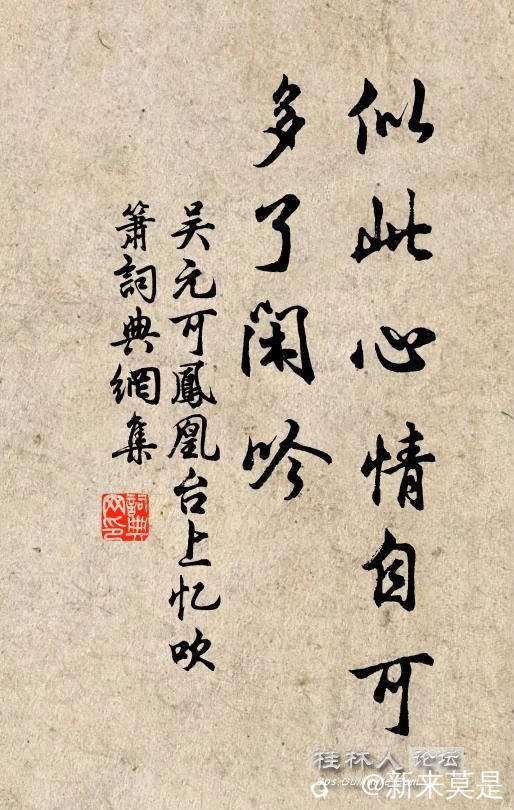 似此心情自可
多了闲吟
吴元可鳳凰台上忆吹
箫詞典網集
詞典
网印
桂林人论坛
@新来莫是